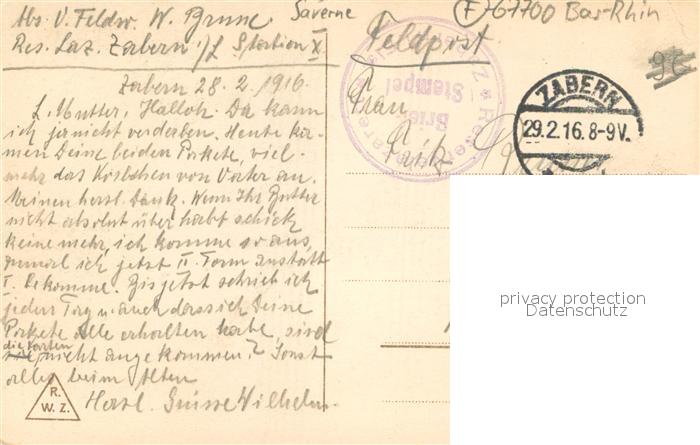 Abs. V. Feldw. W. Brune
Res. Laz. Zabern i/E Station X
Saverne
F-67700 Bas-Rhin
Feldpost
Zabern 28.2.1916.
L. Mutter, Halloh. Da kann
ich ja nicht verderben. Heute ka-
men Deine beiden Pakete, viel-
mehr das Kistchen von Vater an.
Meinen herzl. Dank. Wenn Ihr Butter
nicht absolut über habt schick
keine mehr, ich komme so aus,
zumal ich jetzt II. Form anstatt
I. bekomme. Bis jetzt schrieb ich
jeden Tag u. auch dass ich Deine
Pakete alle erhalten habe, sind
die Karten
nicht angekommen? Sonst
alles beim Alten
Herzl. Grüsse Wilhelm.
Frau
Brief
Stempel
ZABERN
29.2.16.8-9V.
privacy protection
Datenschutz
R.
W. Z.